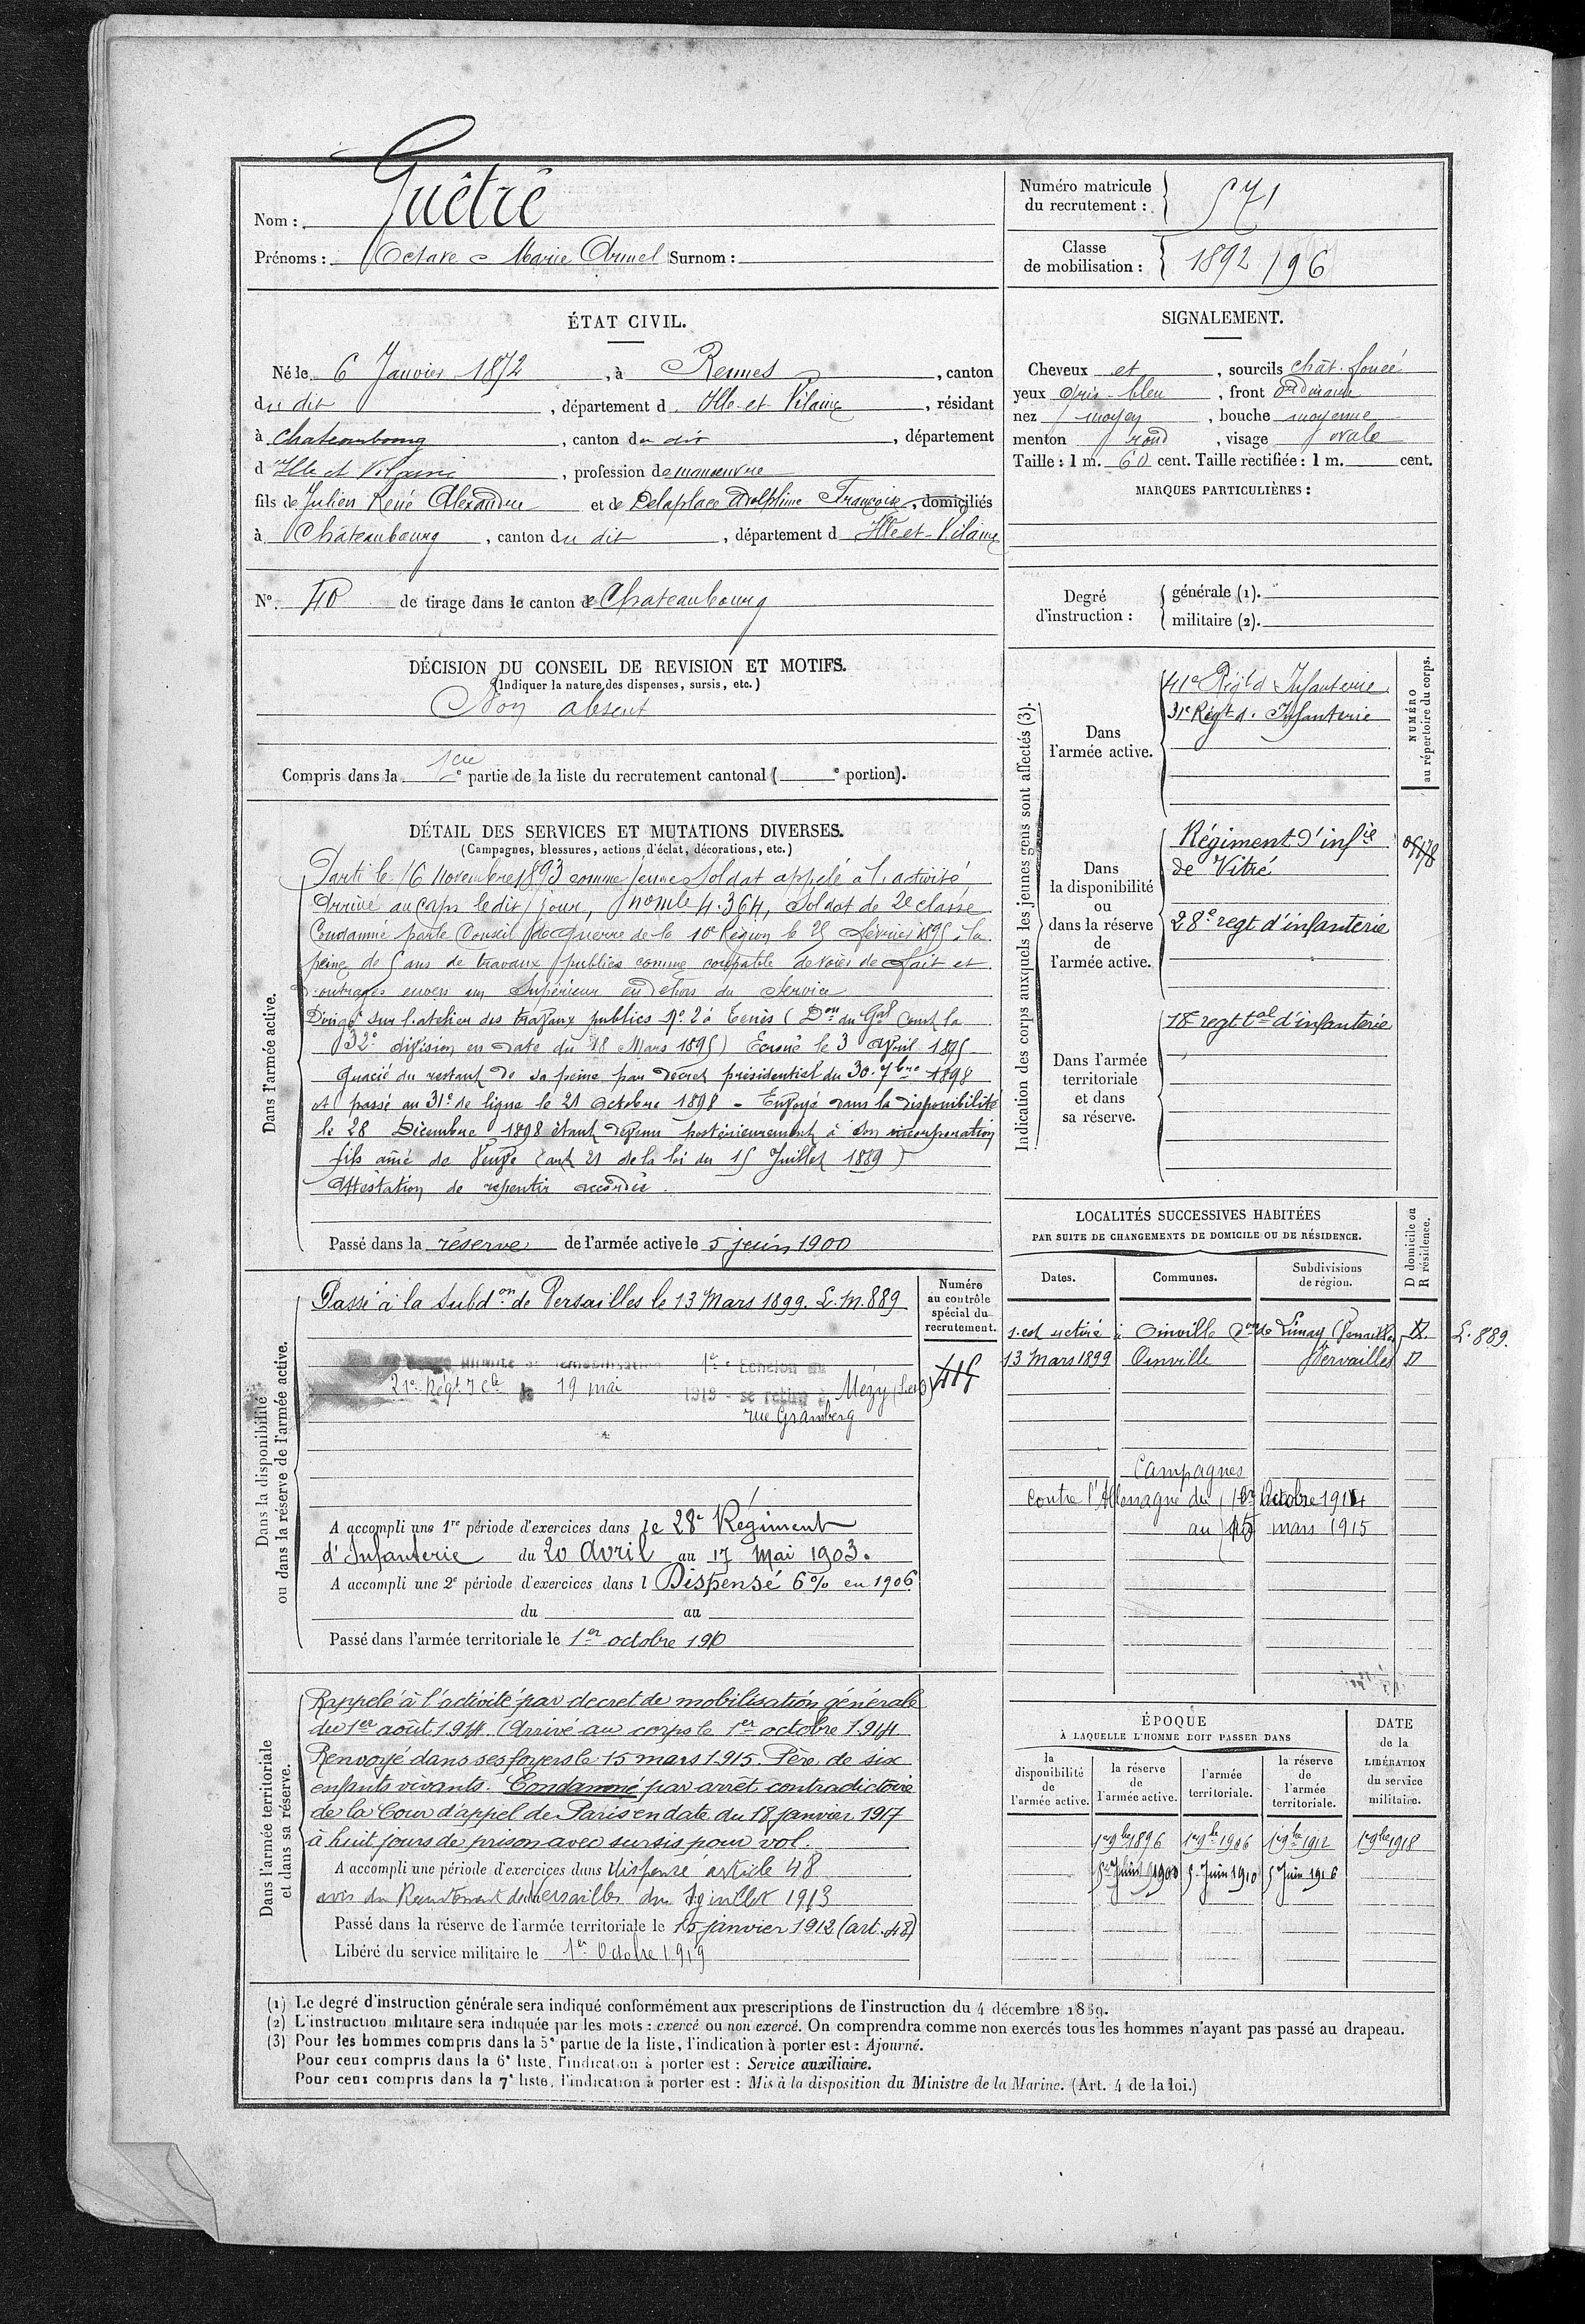 Nom : Guêtré
Prénoms : Octave Marie Armel Surnom :
Numéro matricule
du recrutement : 571
Classe
de mobilisation : 1892 / 96
ÉTAT CIVIL.
Né le 6 Janvier 1872, à Rennes, canton
du dit, département d Ille-et-Vilaine, résidant
à Chateaubourg, canton du dit, département
d Ille et Vilaine, profession de manœuvre
fils de Julien René Alexandre et de Delaplace Adolphine Françoise, domiciliés
à Châteaubourg, canton du dit, département d Ille-et-Vilaine
N° 40 de tirage dans le canton de Chateaubourg
SIGNALEMENT.
Cheveux et, sourcils chât. foncé
yeux gris-bleu, front ordinaire
nez moyen, bouche moyenne
menton rond, visage ovale
Taille : 1 m. 60 cent. Taille rectifiée : 1 m. cent.
MARQUES PARTICULIÈRES :
Degré
d'instruction :
générale (1).
militaire (2).
DÉCISION DU CONSEIL DE REVISION ET MOTIFS.
(Indiquer la nature des dispenses, sursis, etc.)
Bon absent
Compris dans la 1ère partie de la liste du recrutement cantonal ( e portion).
DÉTAIL DES SERVICES ET MUTATIONS DIVERSES.
(Campagnes, blessures, actions d'éclat, décorations, etc.)
Dans l'armée active.
Parti le 16 novembre 1893 comme jeune soldat appelé à l'activité
Arrivé au corps le dit jour, nomle 4.364, soldat de 2e classe
Condamné par le Conseil de Guerre de la 10e Région le 25 février 1895 à la
peine de 5 ans de travaux publics comme coupable de voies de fait et
outrages envers un supérieur en dehors du service
Dirigé sur l'atelier des travaux publics No 2 à Ténès (Don du Gal Comt la
32e division en date du 18 Mars 1895) Écroué le 3 Avril 1895
Gracié du restant de sa peine par décret présidentiel du 30 7bre 1898
et passé au 31e de ligne le 21 octobre 1898 - Envoyé dans la disponibilité
le 28 Décembre 1898 étant devenu postérieurement à son incorporation
fils aîné de veuve (art 21 de la loi du 15 Juillet 1889)
Attestation de repentir accordée.
Passé dans la réserve de l'armée active le 5 juin 1900
Indication des corps auxquels les jeunes gens sont affectés (3).
NUMÉRO
au répertoire du corps.
Dans
l'armée active.
41e Régt d'Infanterie
31e Régt d'Infanterie
Dans
la disponibilité
ou
dans la réserve
de
l'armée active.
Régiment d'infie
de Vitré
28e regt d'infanterie
Dans l'armée
territoriale
et dans
sa réserve.
18e regt tal d'infanterie
Dans la disponibilité
ou dans la réserve de l'armée active.
Numéro
au contrôle
spécial du
recrutement.
Passé à la subdon de Versailles le 13 Mars 1899. L.M. 889
1er Échelon
21e Régt Cle le 19 mai 1919 - se retire à Mezy (S et O)
rue Gramberg
A accompli une 1re période d'exercices dans le 28e Régiment
d'Infanterie du 20 Avril au 17 Mai 1903.
A accompli une 2e période d'exercices dans l Dispensé 6% en 1906
du au
Passé dans l'armée territoriale le 1er octobre 1910
LOCALITÉS SUCCESSIVES HABITÉES
PAR SUITE DE CHANGEMENTS DE DOMICILE OU DE RÉSIDENCE.
Dates. Communes. Subdivisions
de région. D domicile ou
R résidence.
s'est retiré à Oinville con de Limay (Versailles) R. L. 889.
13 Mars 1899 Oinville Versailles D
Campagnes
Contre l'Allemagne du 1er Octobre 1914
au 15 mars 1915
Dans l'armée territoriale
et dans sa réserve.
Rappelé à l'activité par decret de mobilisation générale
du 1er août 1914. Arrivé au corps le 1er octobre 1914
Renvoyé dans ses foyers le 15 mars 1915. Père de six
enfants vivants. Condamné par arrêt contradictoire
de la Cour d'appel de Paris en date du 18 janvier 1917
à huit jours de prison avec sursis pour vol.
A accompli une période d'exercices dans dispensé article 48
avis du Recrutement de Versailles du juillet 1913
Passé dans la réserve de l'armée territoriale le 15 janvier 1912 (art. 48)
Libéré du service militaire le 1er Octobre 1919
ÉPOQUE
À LAQUELLE L'HOMME DOIT PASSER DANS
la
disponibilité
de
l'armée active.
la réserve
de
l'armée active.
l'armée
territoriale.
la réserve
de
l'armée
territoriale.
DATE
de la
LIBÉRATION
du service
militaire.
1er 9bre 1896 1er 9bre 1906 1er 9bre 1912 1er 9bre 1918
5 Juin 1900 5 Juin 1910 5 Juin 1916
(1) Le degré d'instruction générale sera indiqué conformément aux prescriptions de l'instruction du 4 décembre 1889.
(2) L'instruction militaire sera indiquée par les mots : exercé ou non exercé. On comprendra comme non exercés tous les hommes n'ayant pas passé au drapeau.
(3) Pour les hommes compris dans la 5e partie de la liste, l'indication à porter est : Ajourné.
Pour ceux compris dans la 6e liste, l'indication à porter est : Service auxiliaire.
Pour ceux compris dans la 7e liste, l'indication à porter est : Mis à la disposition du Ministre de la Marine. (Art. 4 de la loi.)